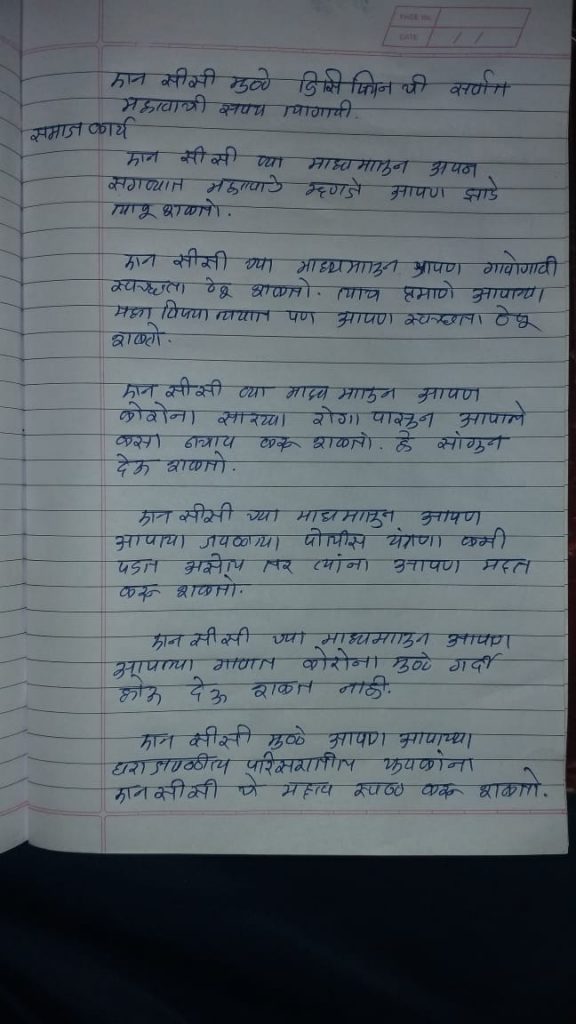 PAGE No.
DATE / /
एन सीसी मुळे डिसिप्लिन ची सर्वात
महत्वाची सवय लागावी.
समाज कार्य
एन सीसी च्या माध्यमातून आपन
सगळ्यात महत्वाचे म्हणजे आपण झाडे
लावू शकतो.
एन सीसी च्या माध्यमातून आपण गावोगावी
स्वच्छता ठेवू शकतो. त्याच प्रमाणे आपल्या
महाविद्यालयात पण आपण स्वच्छता ठेवू
शकतो.
एन सीसी च्या माध्यमातून आपण
कोरोना सारख्या रोगा पासून आपले
कसा बचाव करू शकतो. हे सांगून
देऊ शकतो.
एन सीसी च्या माध्यमातून आपण
आपल्या जवळच्या पोलीस यंत्रणा कमी
पडत असेल तर त्यांना आपण मदत
करू शकतो.
एन सीसी च्या माध्यमातून आपण
आपल्या गावात कोरोना मुळे गर्दी
होऊ देऊ शकत नाही.
एन सीसी मुळे आपण आपल्या
घराजवळील परिसरातील
एन सीसी चे महत्व स्पष्ट करू शकतो.